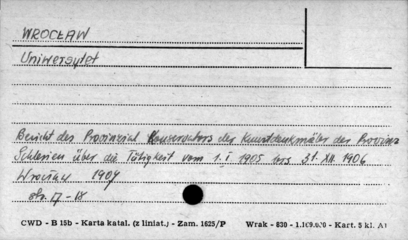 WROCŁAW
Uniwersytet
Bericht des Provinzial Konservators der Kunstdenkmäler der Provinz
Schlesien über die Tätigkeit vom 1. I 1905 bis 31. XII. 1906
Wrocław 1907
str. 17 - 18
CWD - B 15b - Karta katal. (z liniat.) - Zam. 1625/P Wrak - 830 - 1.109.000 - Kart. 5 kl. A1